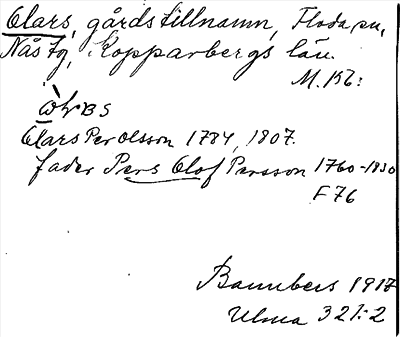 Olars, gårdstillnamn, Floda sn,
Nås tg, Kopparbergs län.
M. 156:
BS
Olars Per Olsson 1784, 1807.
fader Pers Olof Persson 1760-1830
F 76
Bannbers 1917
Ulma 321:2